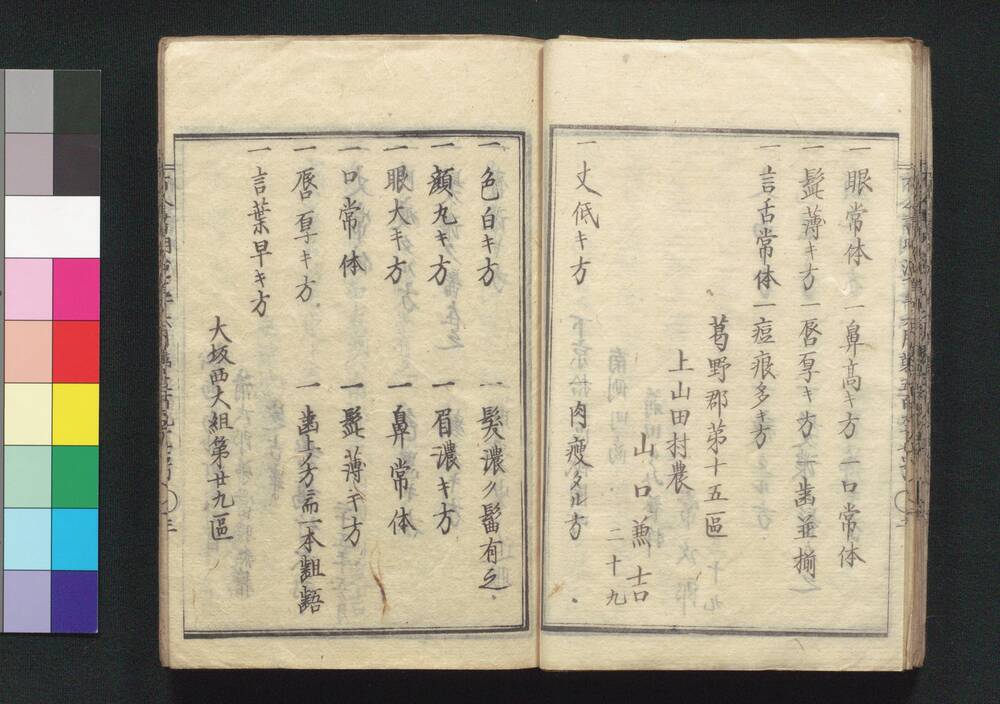 一眼常体 一鼻高キ方 一口常体
一髭薄キ方 一唇厚キ方 一歯並揃
一言舌常体 一痘痕多キ方
葛野郡第十五區
上山田村農
山口兼吉
二十九
一丈低キ方 一肉瘦タル方
一色白キ方 一髪濃ク鬢有之
一顔丸キ方 一眉濃キ方
一眼大キ方 一鼻常体
一口常体 一髭薄キ方
一唇厚キ方 一歯上ノ方ニ而一本齟齬
一言葉早キ方
大坂西大組第廿九區